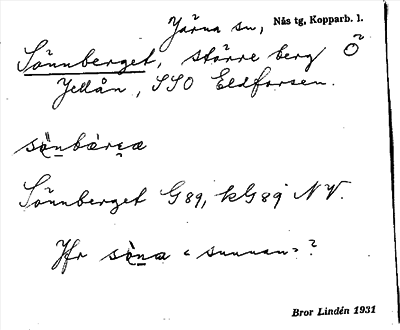 Järna sn, Nås tg, Kopparb. l.
Sönnberget, större berg Ö
Jellån, SSO Eldforsen.
Sönnberget G89, kG89 NV.
Jfr "sunnan"?
Bror Lindén 1931